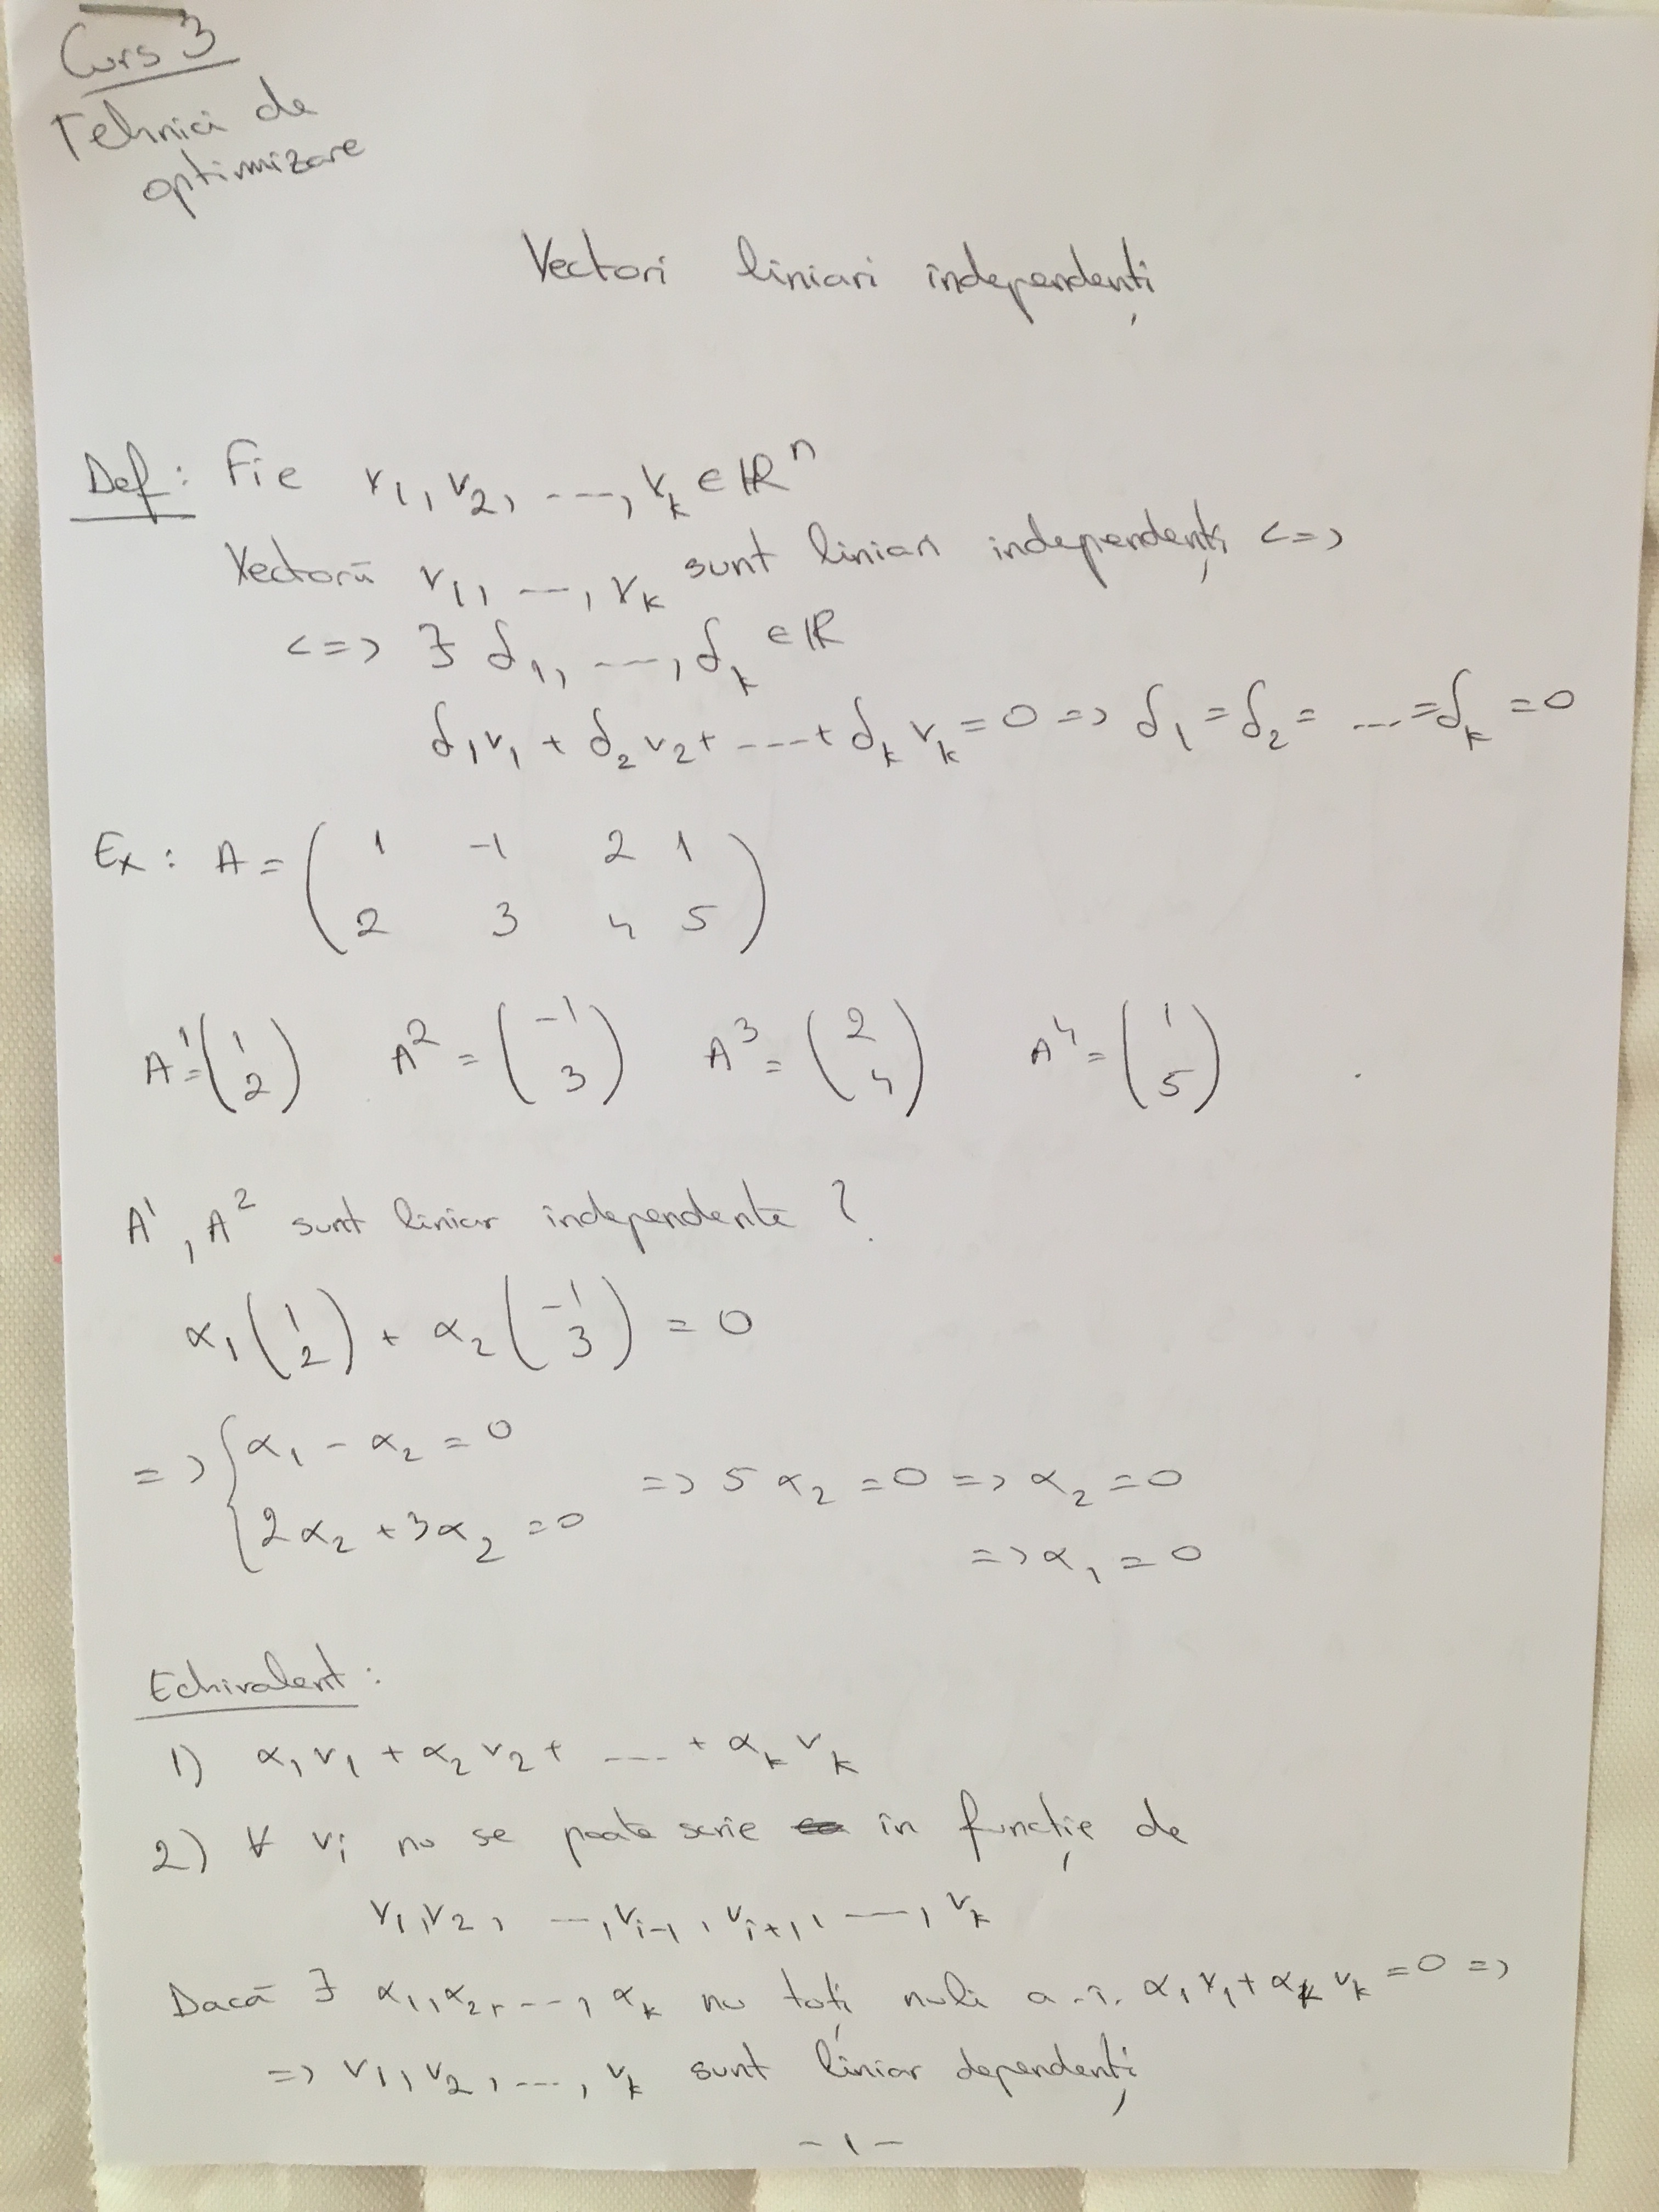 Curs 3
Tehnici de
optimizare
Vectori liniari independenți
Def: Fie v₁, v₂, ..., vₖ ∈ ℝⁿ
Vectorii v₁, ..., vₖ sunt liniari independenți <=>
<=> ∃ δ₁, ..., δₖ ∈ ℝ
δ₁v₁ + δ₂v₂ + ... + δₖvₖ = 0 => δ₁ = δ₂ = ... = δₖ = 0
Ex: A = ( 1 -1 2 1
2 3 4 5 )
A¹ = (1 2) A² = (-1 3) A³ = (2 4) A⁴ = (1 5)
A¹, A² sunt liniar independente ?
α₁ (1 2) + α₂ (-1 3) = 0
=> { α₁ - α₂ = 0
2α₂ + 3α₂ = 0 => 5α₂ = 0 => α₂ = 0
=> α₁ = 0
Echivalent:
1) α₁v₁ + α₂v₂ + ... + αₖvₖ
2) ∀ vᵢ nu se poate scrie în funcție de
v₁, v₂, ..., vᵢ₋₁, vᵢ₊₁, ..., vₖ
Dacă ∃ α₁, α₂, ..., αₖ nu toți nuli a.î. α₁v₁ + αₖvₖ = 0 =>
=> v₁, v₂, ..., vₖ sunt liniar dependenți
- 1 -